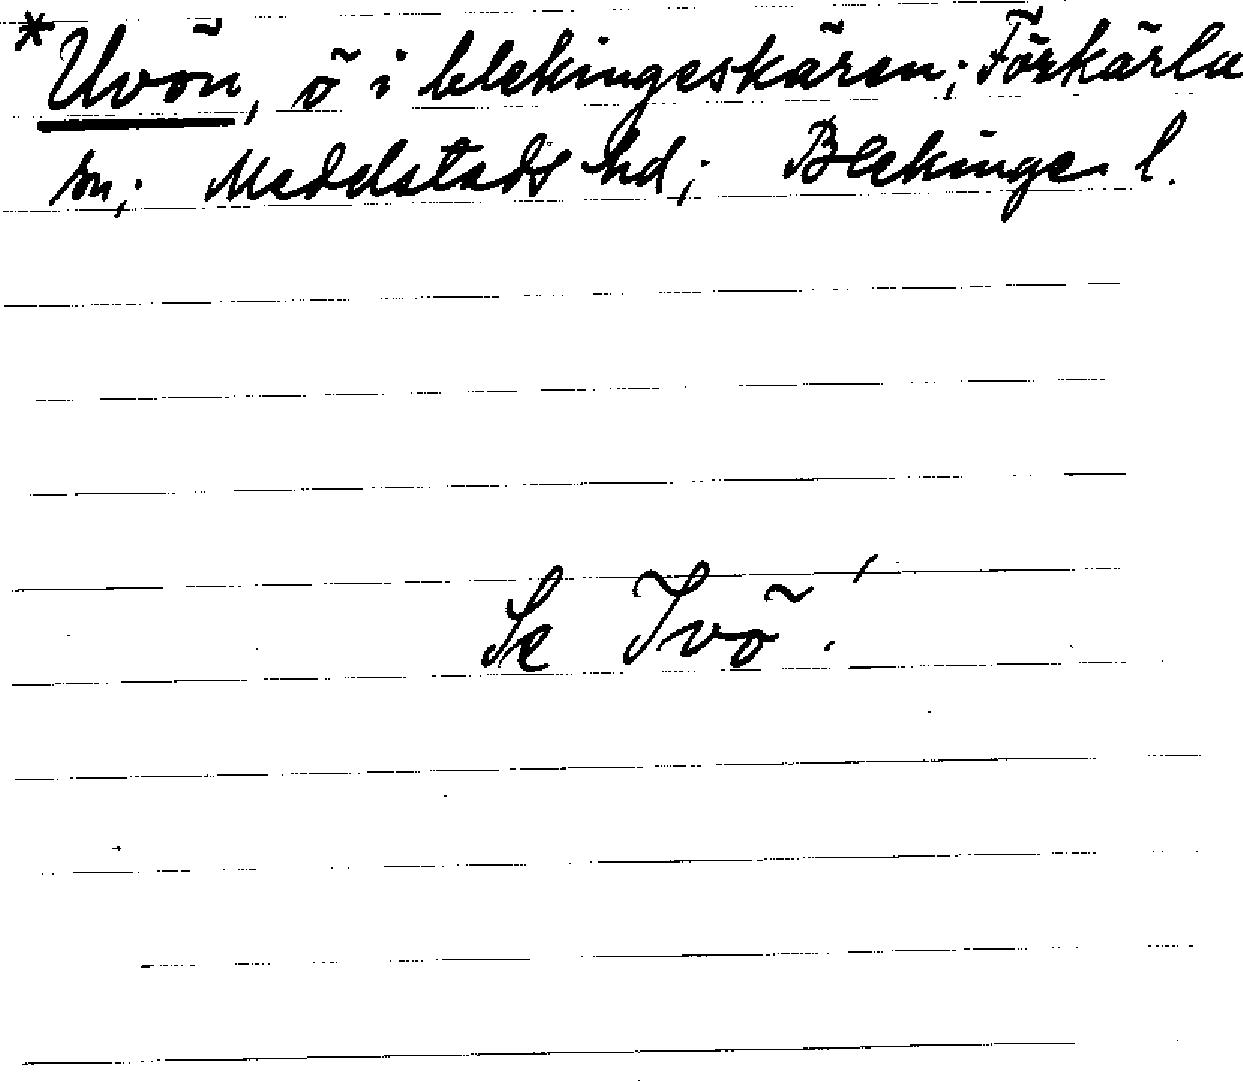 *Uvön, ö i blekingeskären; Förkärla
sn; Medelstads hd; Blekinge l.
Se Ivö!